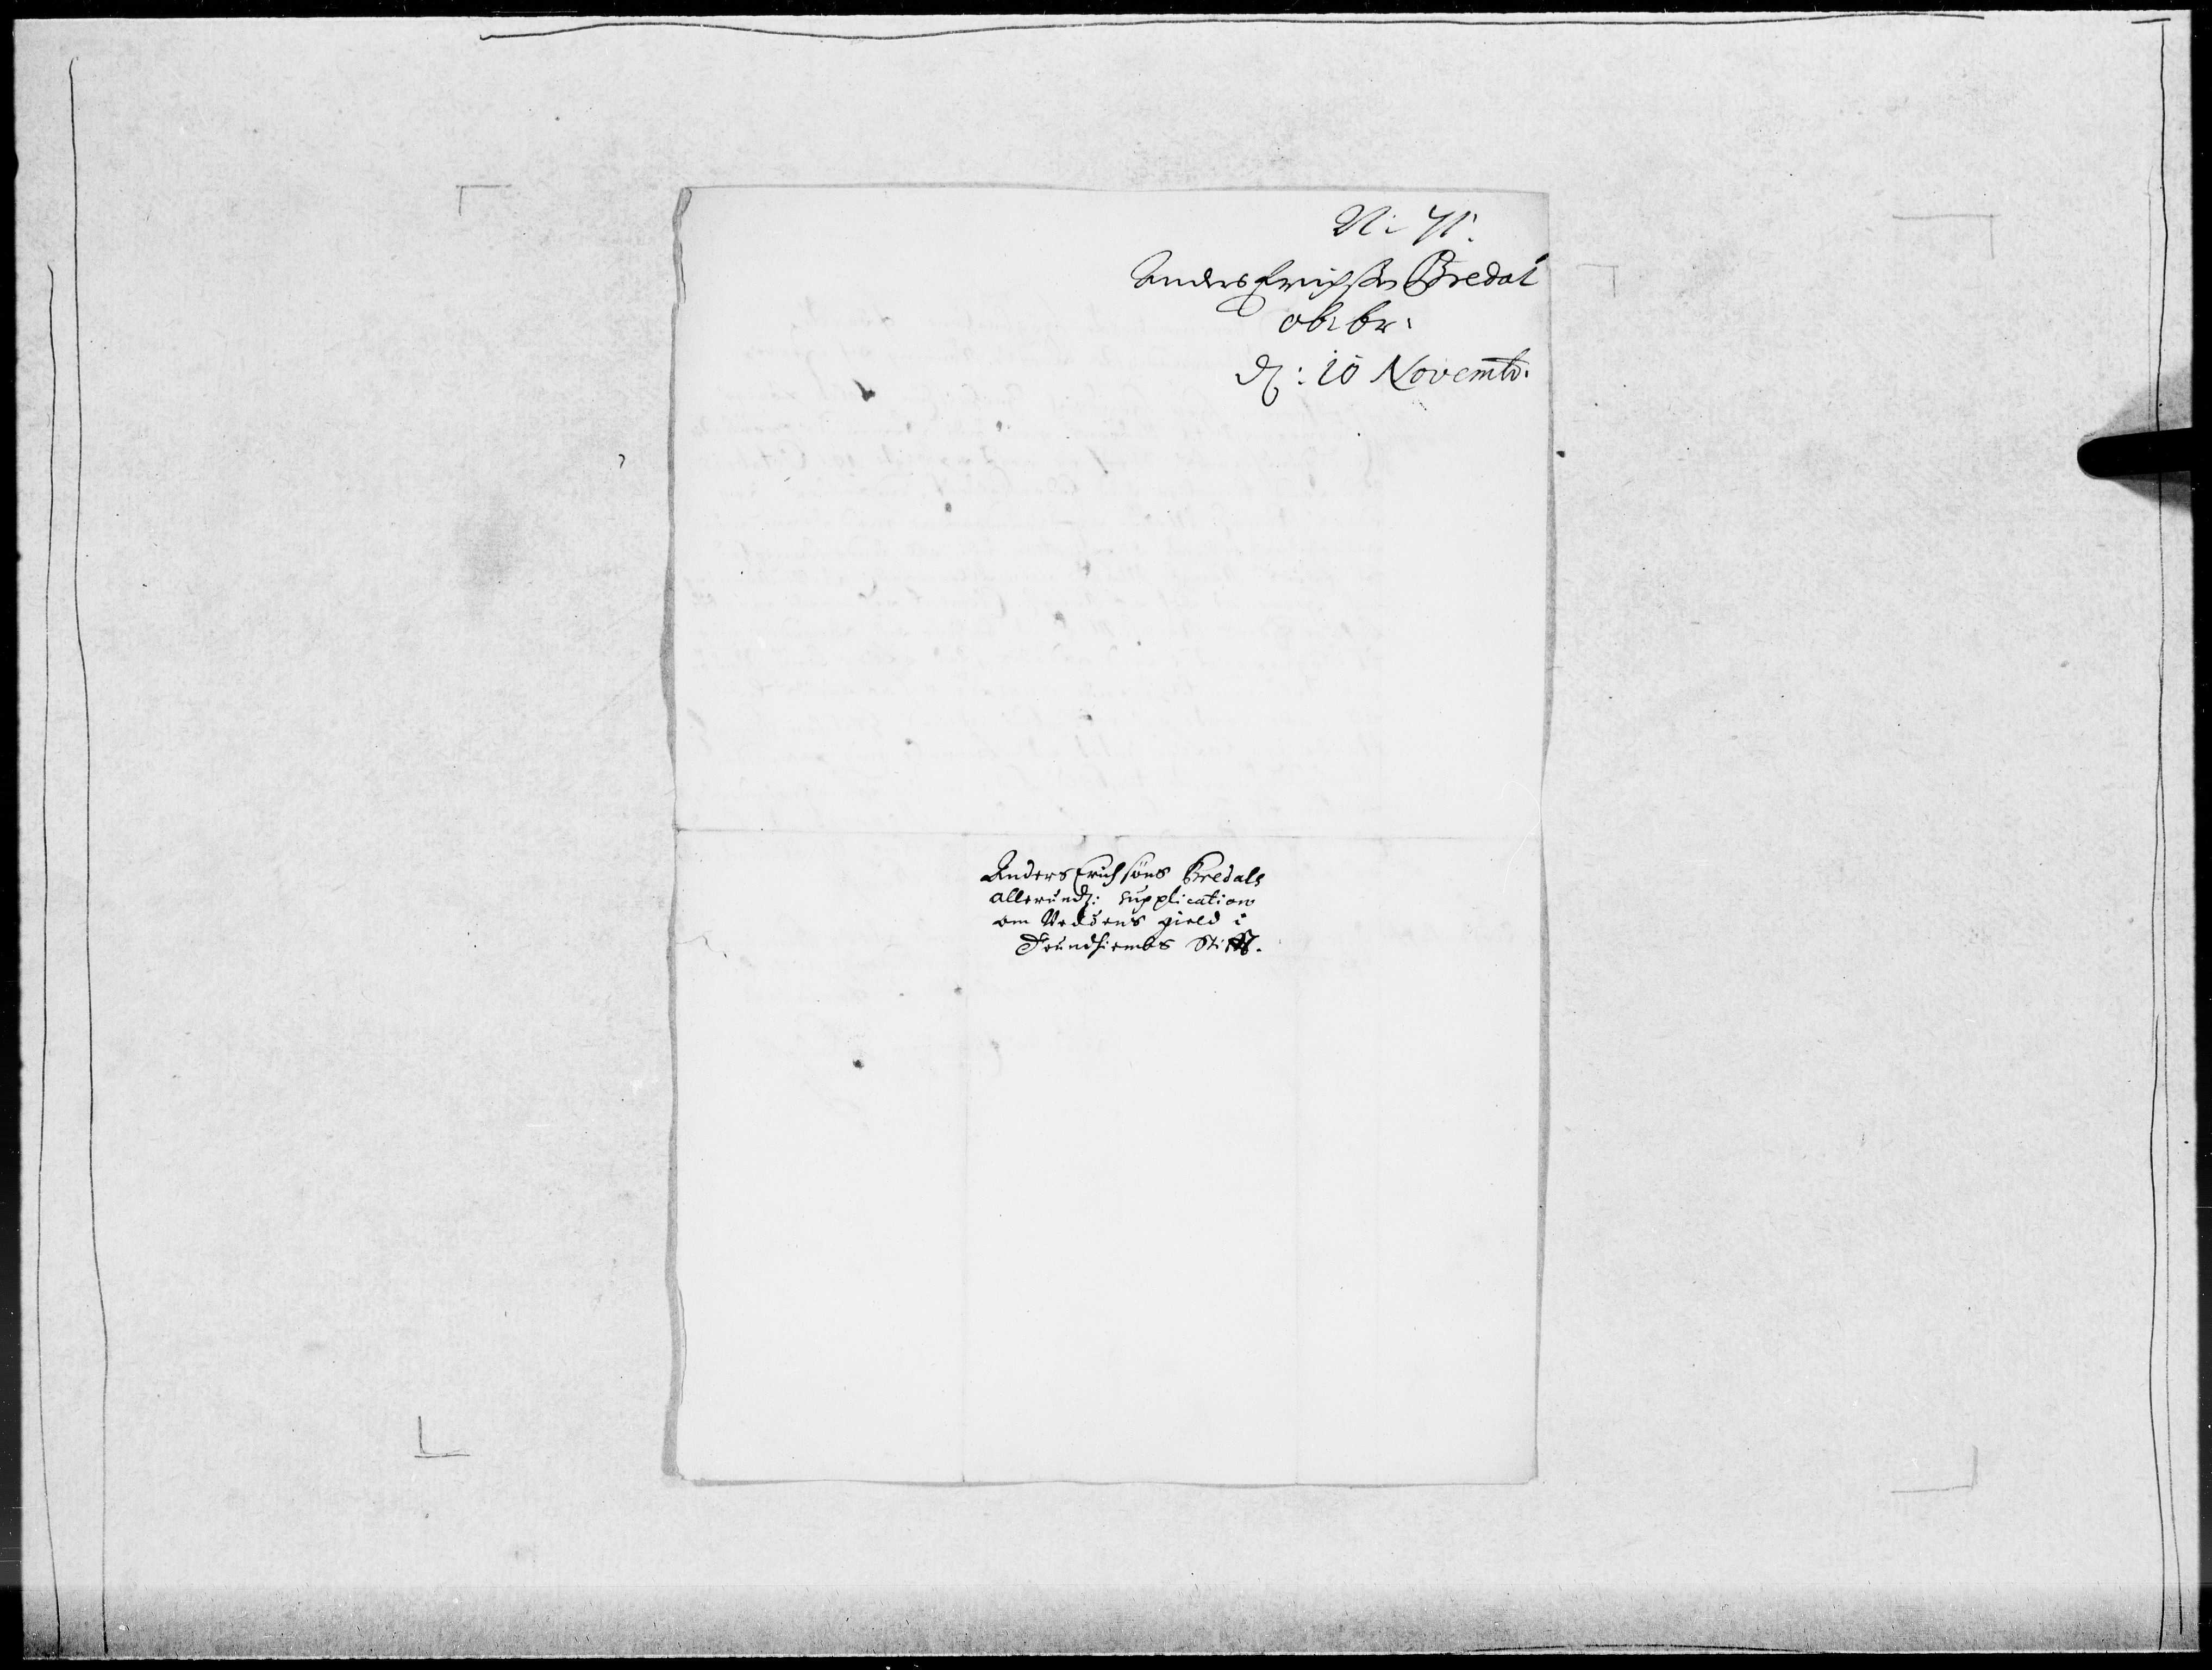 N: 71.
Anders Erichssøn Bredal
ob: br:
d: 10 Novembr.
Anders Erichsöns Bredals
allerund: supplication
om Vedöens gield i
Trundhiembs Stifft.